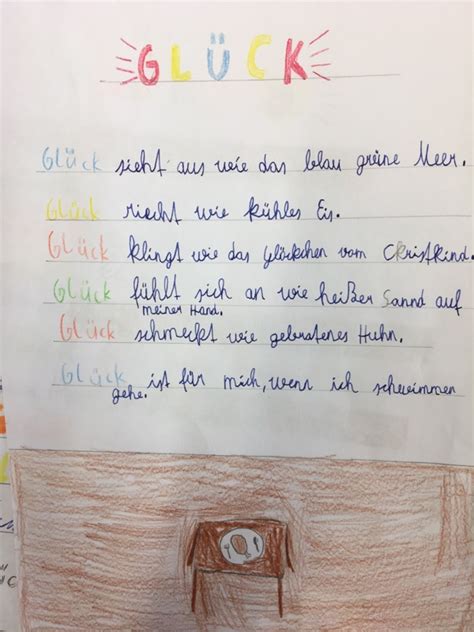 GLÜCK
Glück sieht aus wie das blau grüne Meer.
Glück riecht wie kühles Eis.
Glück klingt wie das Glöckchen vom Christkind.
Glück fühlt sich an wie heißer Sannd auf
meiner Hand.
Glück schmeckt wie gebratenes Huhn.
Glück ist für mich, wenn ich schwimmen
gehe.